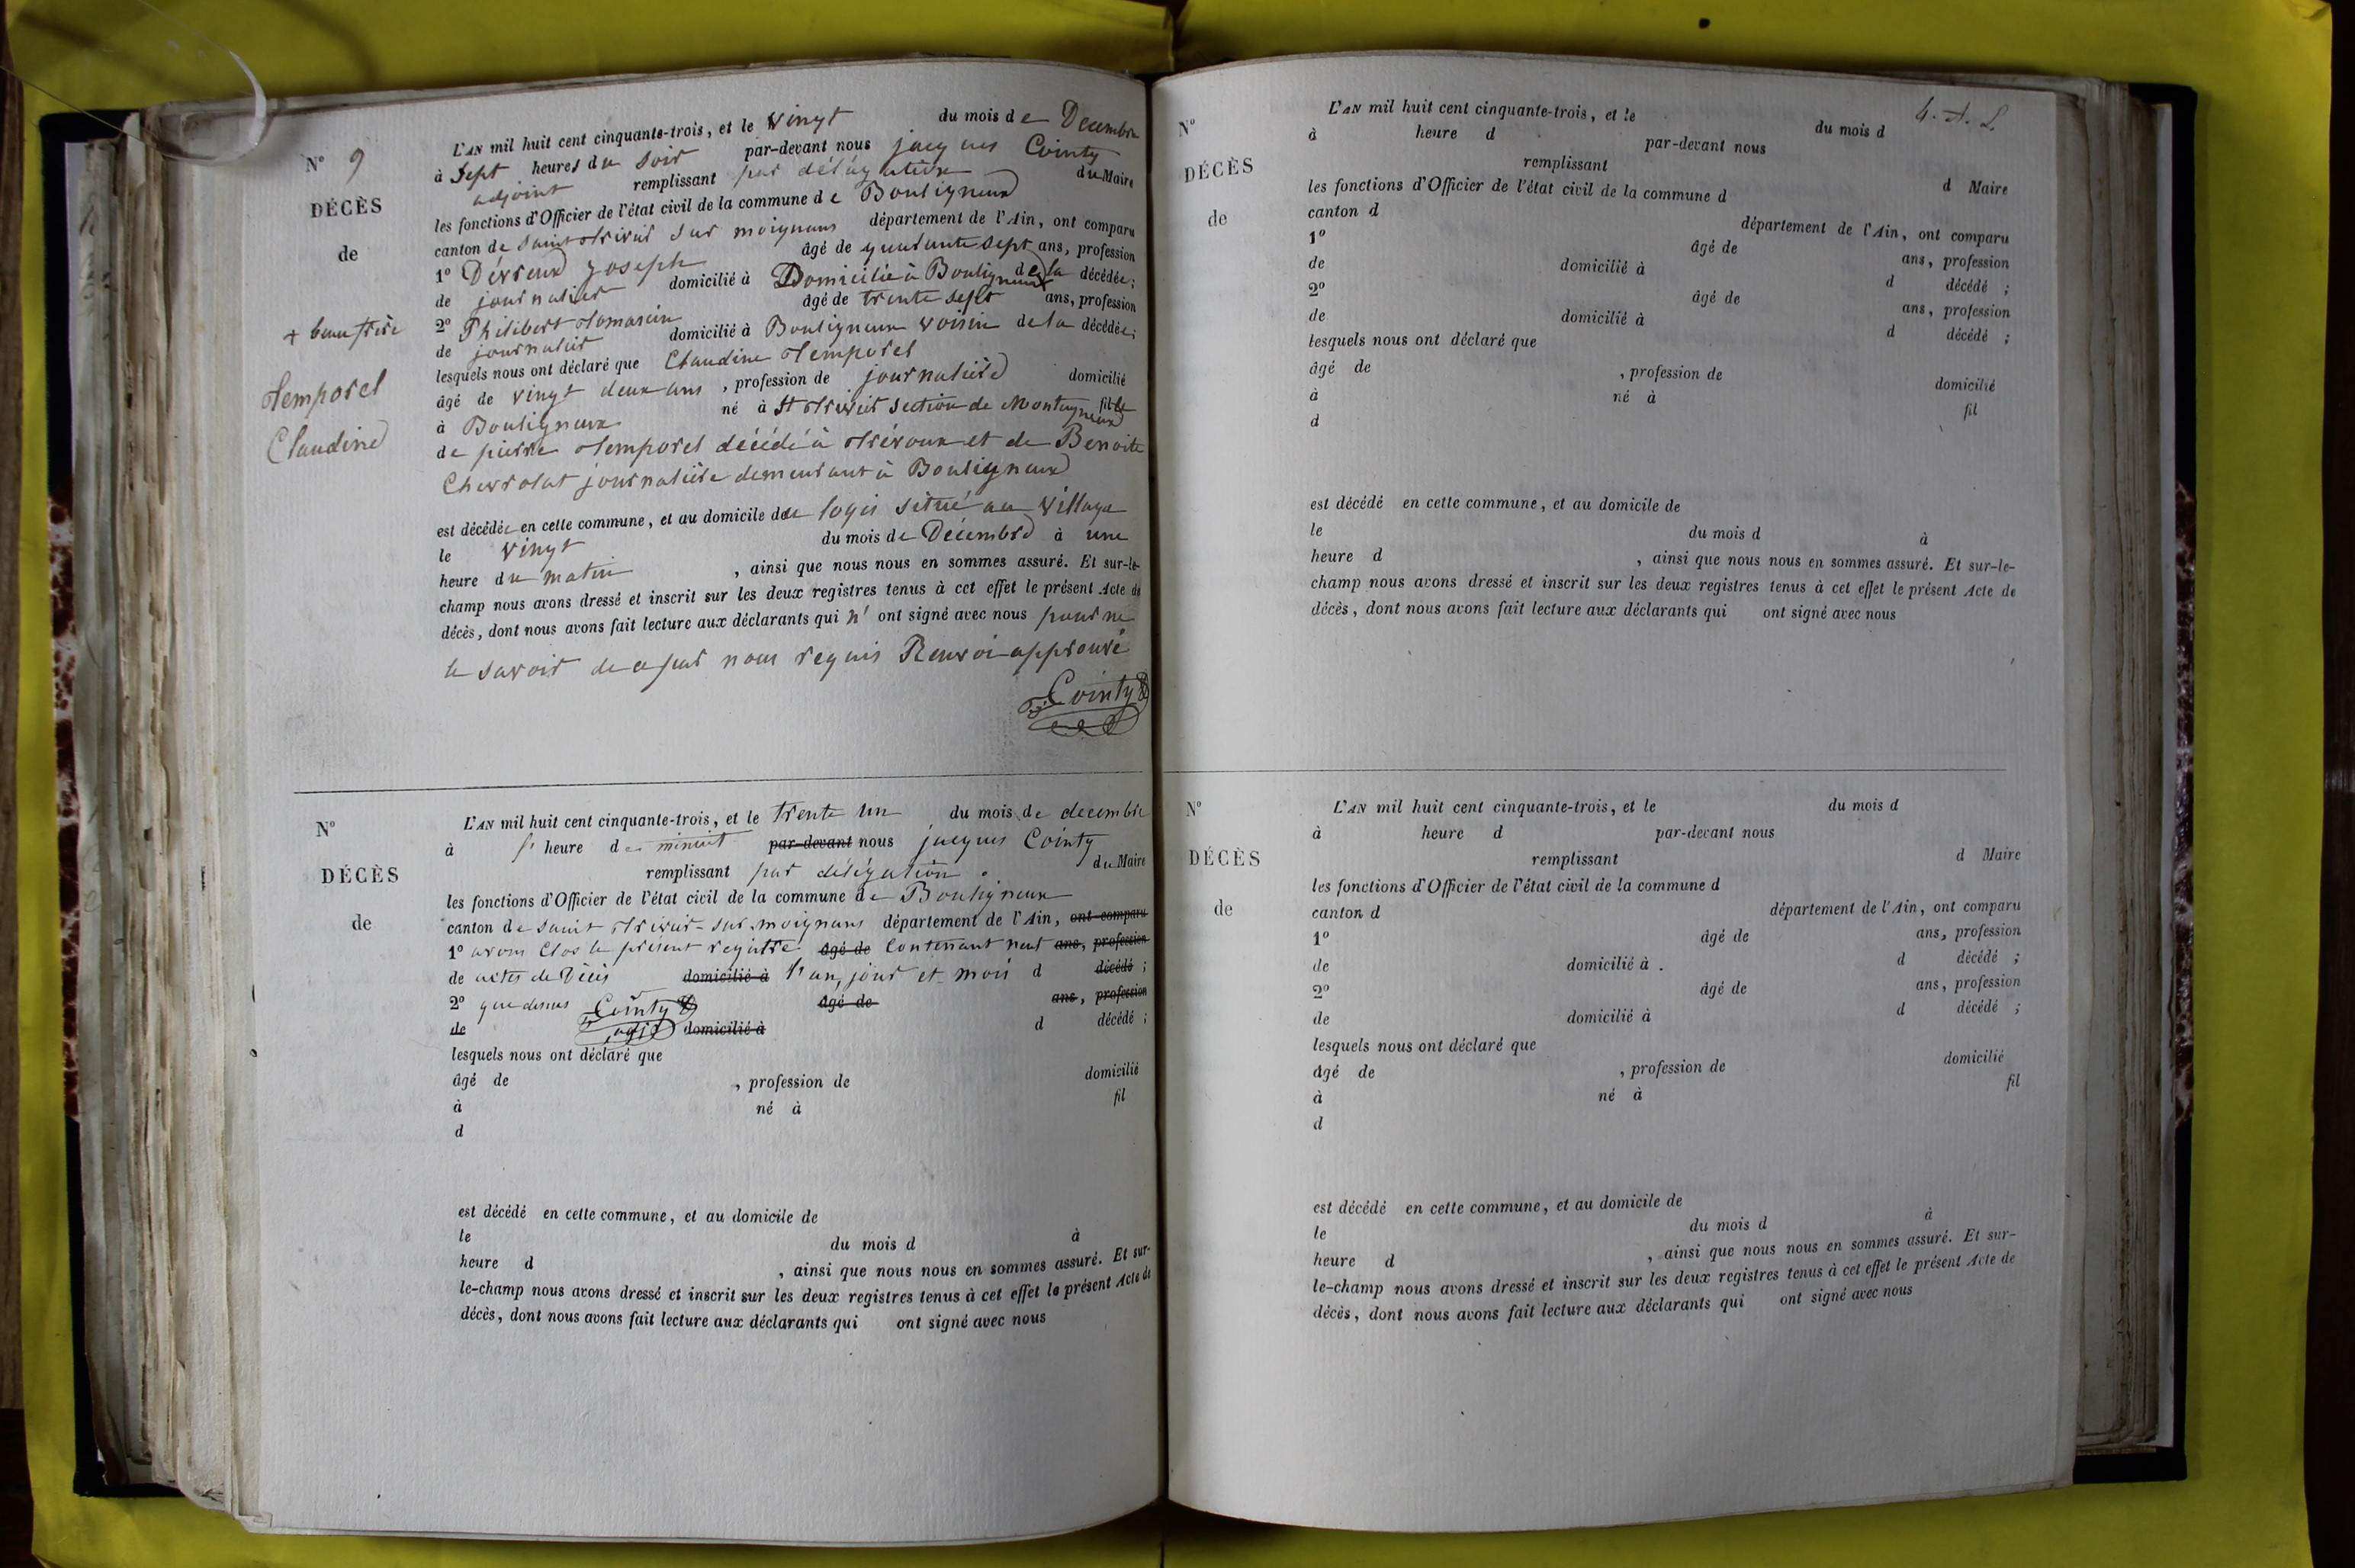 N° 9
DÉCÈS
de
+ beau frère
Temporel
Claudine
L'AN mil huit cent cinquante-trois, et le vingt du mois de Decembre
à Sept heures du soir par-devant nous jacques Cointy
adjoint remplissant par délégation du Maire
les fonctions d'Officier de l'état civil de la commune de Bouligneux
canton de saint trivier sur moignans département de l'Ain, ont comparu
1° Dévreux joseph âgé de quarante sept ans, profession
de journalier domicilié à Domicilié à Bouligneux de la décédée;
2° Philibert tomasin âgé de trente sept ans, profession
de journalier domicilié à Bouligneux voisin de la décédée;
lesquels nous ont déclaré que Claudine temporel
âgé de vingt deux ans, profession de journalière domicilié
à Bouligneux né à St trivier section de Montagneux fille
de pierre temporel décédé à trévoux et de Benoite
Chevrolat journalière demeurant à Bouligneux
est décédée en cette commune, et au domicile de logis situé au village
le vingt du mois de Décembre à une
heure du matin, ainsi que nous nous en sommes assuré. Et sur-le-
champ nous avons dressé et inscrit sur les deux registres tenus à cet effet le présent Acte de
décès, dont nous avons fait lecture aux déclarants qui n' ont signé avec nous pour ne
le savoir de ce par nous requis Renvoi approuvé
Cointy
N°
DÉCÈS
de
L'AN mil huit cent cinquante-trois, et le trente un du mois de decembre
à heure de minuit par-devant nous jacques Cointy
remplissant par délégation du Maire
les fonctions d'Officier de l'état civil de la commune de Bouligneux
canton de saint trivier-sur-moignans département de l'Ain, ont comparu
1° avons Clos le présent registre âgé de Contenant neuf ans, profession
de actes de Décès domicilié à l'an, jour et mois d décédé ;
2° que dessus Cointy âgé de ans, profession
de adjt domicilié à d décédé ;
lesquels nous ont déclaré que
âgé de , profession de domicilié
à né à fil
d
est décédé en cette commune, et au domicile de
le du mois d à
heure d , ainsi que nous nous en sommes assuré. Et sur-
le-champ nous avons dressé et inscrit sur les deux registres tenus à cet effet le présent Acte de
décès, dont nous avons fait lecture aux déclarants qui ont signé avec nous
N°
DÉCÈS
de
L'AN mil huit cent cinquante-trois, et le du mois d
à heure d par-devant nous
remplissant d Maire
les fonctions d'Officier de l'état civil de la commune d
canton d département de l'Ain, ont comparu
1° âgé de ans, profession
de domicilié à d décédé ;
2° âgé de ans, profession
de domicilié à d décédé ;
lesquels nous ont déclaré que
âgé de , profession de domicilié
à né à fil
d
est décédé en cette commune, et au domicile de
le du mois d à
heure d , ainsi que nous nous en sommes assuré. Et sur-le-
champ nous avons dressé et inscrit sur les deux registres tenus à cet effet le présent Acte de
décès, dont nous avons fait lecture aux déclarants qui ont signé avec nous
N°
DÉCÈS
de
L'AN mil huit cent cinquante-trois, et le du mois d
à heure d par-devant nous
remplissant d Maire
les fonctions d'Officier de l'état civil de la commune d
canton d département de l'Ain, ont comparu
1° âgé de ans, profession
de domicilié à . d décédé ;
2° âgé de ans, profession
de domicilié à d décédé ;
lesquels nous ont déclaré que
âgé de , profession de domicilié
à né à fil
d
est décédé en cette commune, et au domicile de
le du mois d à
heure d , ainsi que nous nous en sommes assuré. Et sur-
le-champ nous avons dressé et inscrit sur les deux registres tenus à cet effet le présent Acte de
décès, dont nous avons fait lecture aux déclarants qui ont signé avec nous